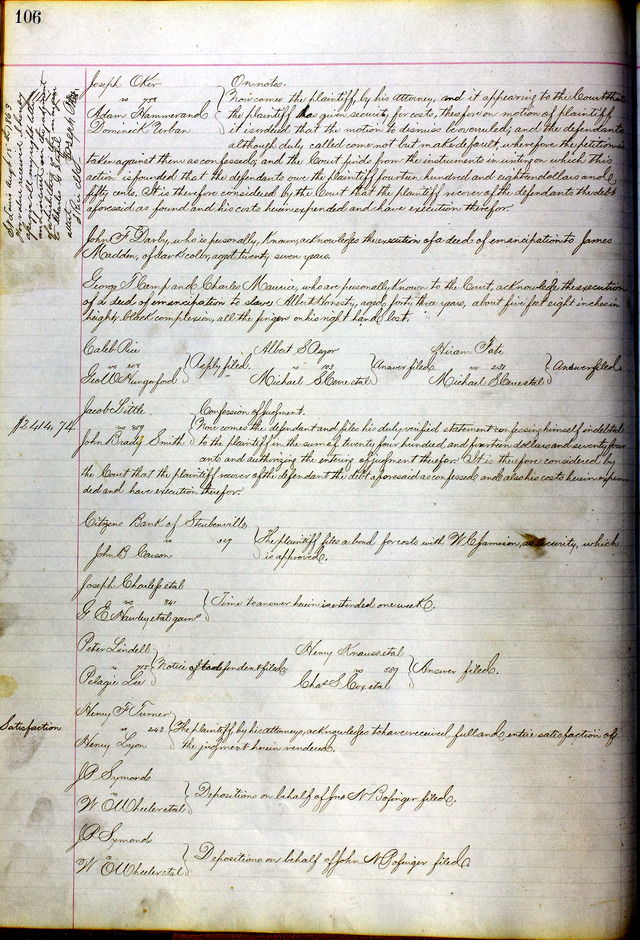 106
Joseph Oker
vs
Adam Hammer and
Dominick Urban
On notes.
Now comes the plaintiff, by his attorney, and it appearing to the Court that
the plaintiff has given security for costs, therefore on motion of plaintiff
it is ordered that the motion to dismiss be overruled; and the defendants
although duly called come not but make default, wherefore the petition is
taken against them as confessed; and the Court finds from the instruments in writing on which this
action is founded that the defendants owe the plaintiff fourteen hundred and eighteen dollars and
fifty cents. It is therefore considered by the Court that the plaintiff recover of the defendants the debt
aforesaid as found and his costs herein expended and have execution therefor.
John F Darby, who is personally known, acknowledges the execution of a deed of emancipation to James
Madden, of dark color, aged twenty seven years.
George T Camp and Charles Maurice, who are personally known to the Court, acknowledge the execution
of a deed of emancipation to slave Albert Honesty, aged forty three years, about five feet eight inches in
height, black complexion, all the fingers on his right hand lost.
Caleb Rice
vs
Geo W Hungerford
Reply filed.
Albert S
vs 103
Michael S Cerre et al
Answer filed
Hiram
vs 231
Michael S Cerre et al
Answer filed
Jacob Little
vs
John Brady Smith
$2414.74
Confession of judgment.
Now comes the defendant and files his duly verified statement confessing himself indebted
to the plaintiff in the sum of twenty four hundred and fourteen dollars and seventy four
cents and authorizing the entering of judgment therefor. It is therefore considered by
the Court that the plaintiff recover of the defendant the debt aforesaid as confessed and also his costs herein expen
ded and have execution therefor.
Citizens Bank of Steubenville
vs
John B Carson
The plaintiff files a bond for costs with W C Jamison, as security, which
is approved.
Joseph Charless et al
vs 841
G E Hawley et al garns
Time to answer herein is extended one week.
Peter Lindell
Pelagie Lee
Notice of to defendent filed
Henry Krauss et al
vs 589
Chas S Cox et al
Answer filed.
Satisfaction
Henry F Turner
243
Henry Lyon
The plaintiff by his attorneys, acknowledges to have received full and entire satisfaction of
the judgment herein rendered.
J P Symonds
vs
W O Wheeler et al
Depositions on behalf of Jno N Bofinger filed.
J P Symonds
vs
W O Wheeler et al
Depositions on behalf of John N Bofinger filed